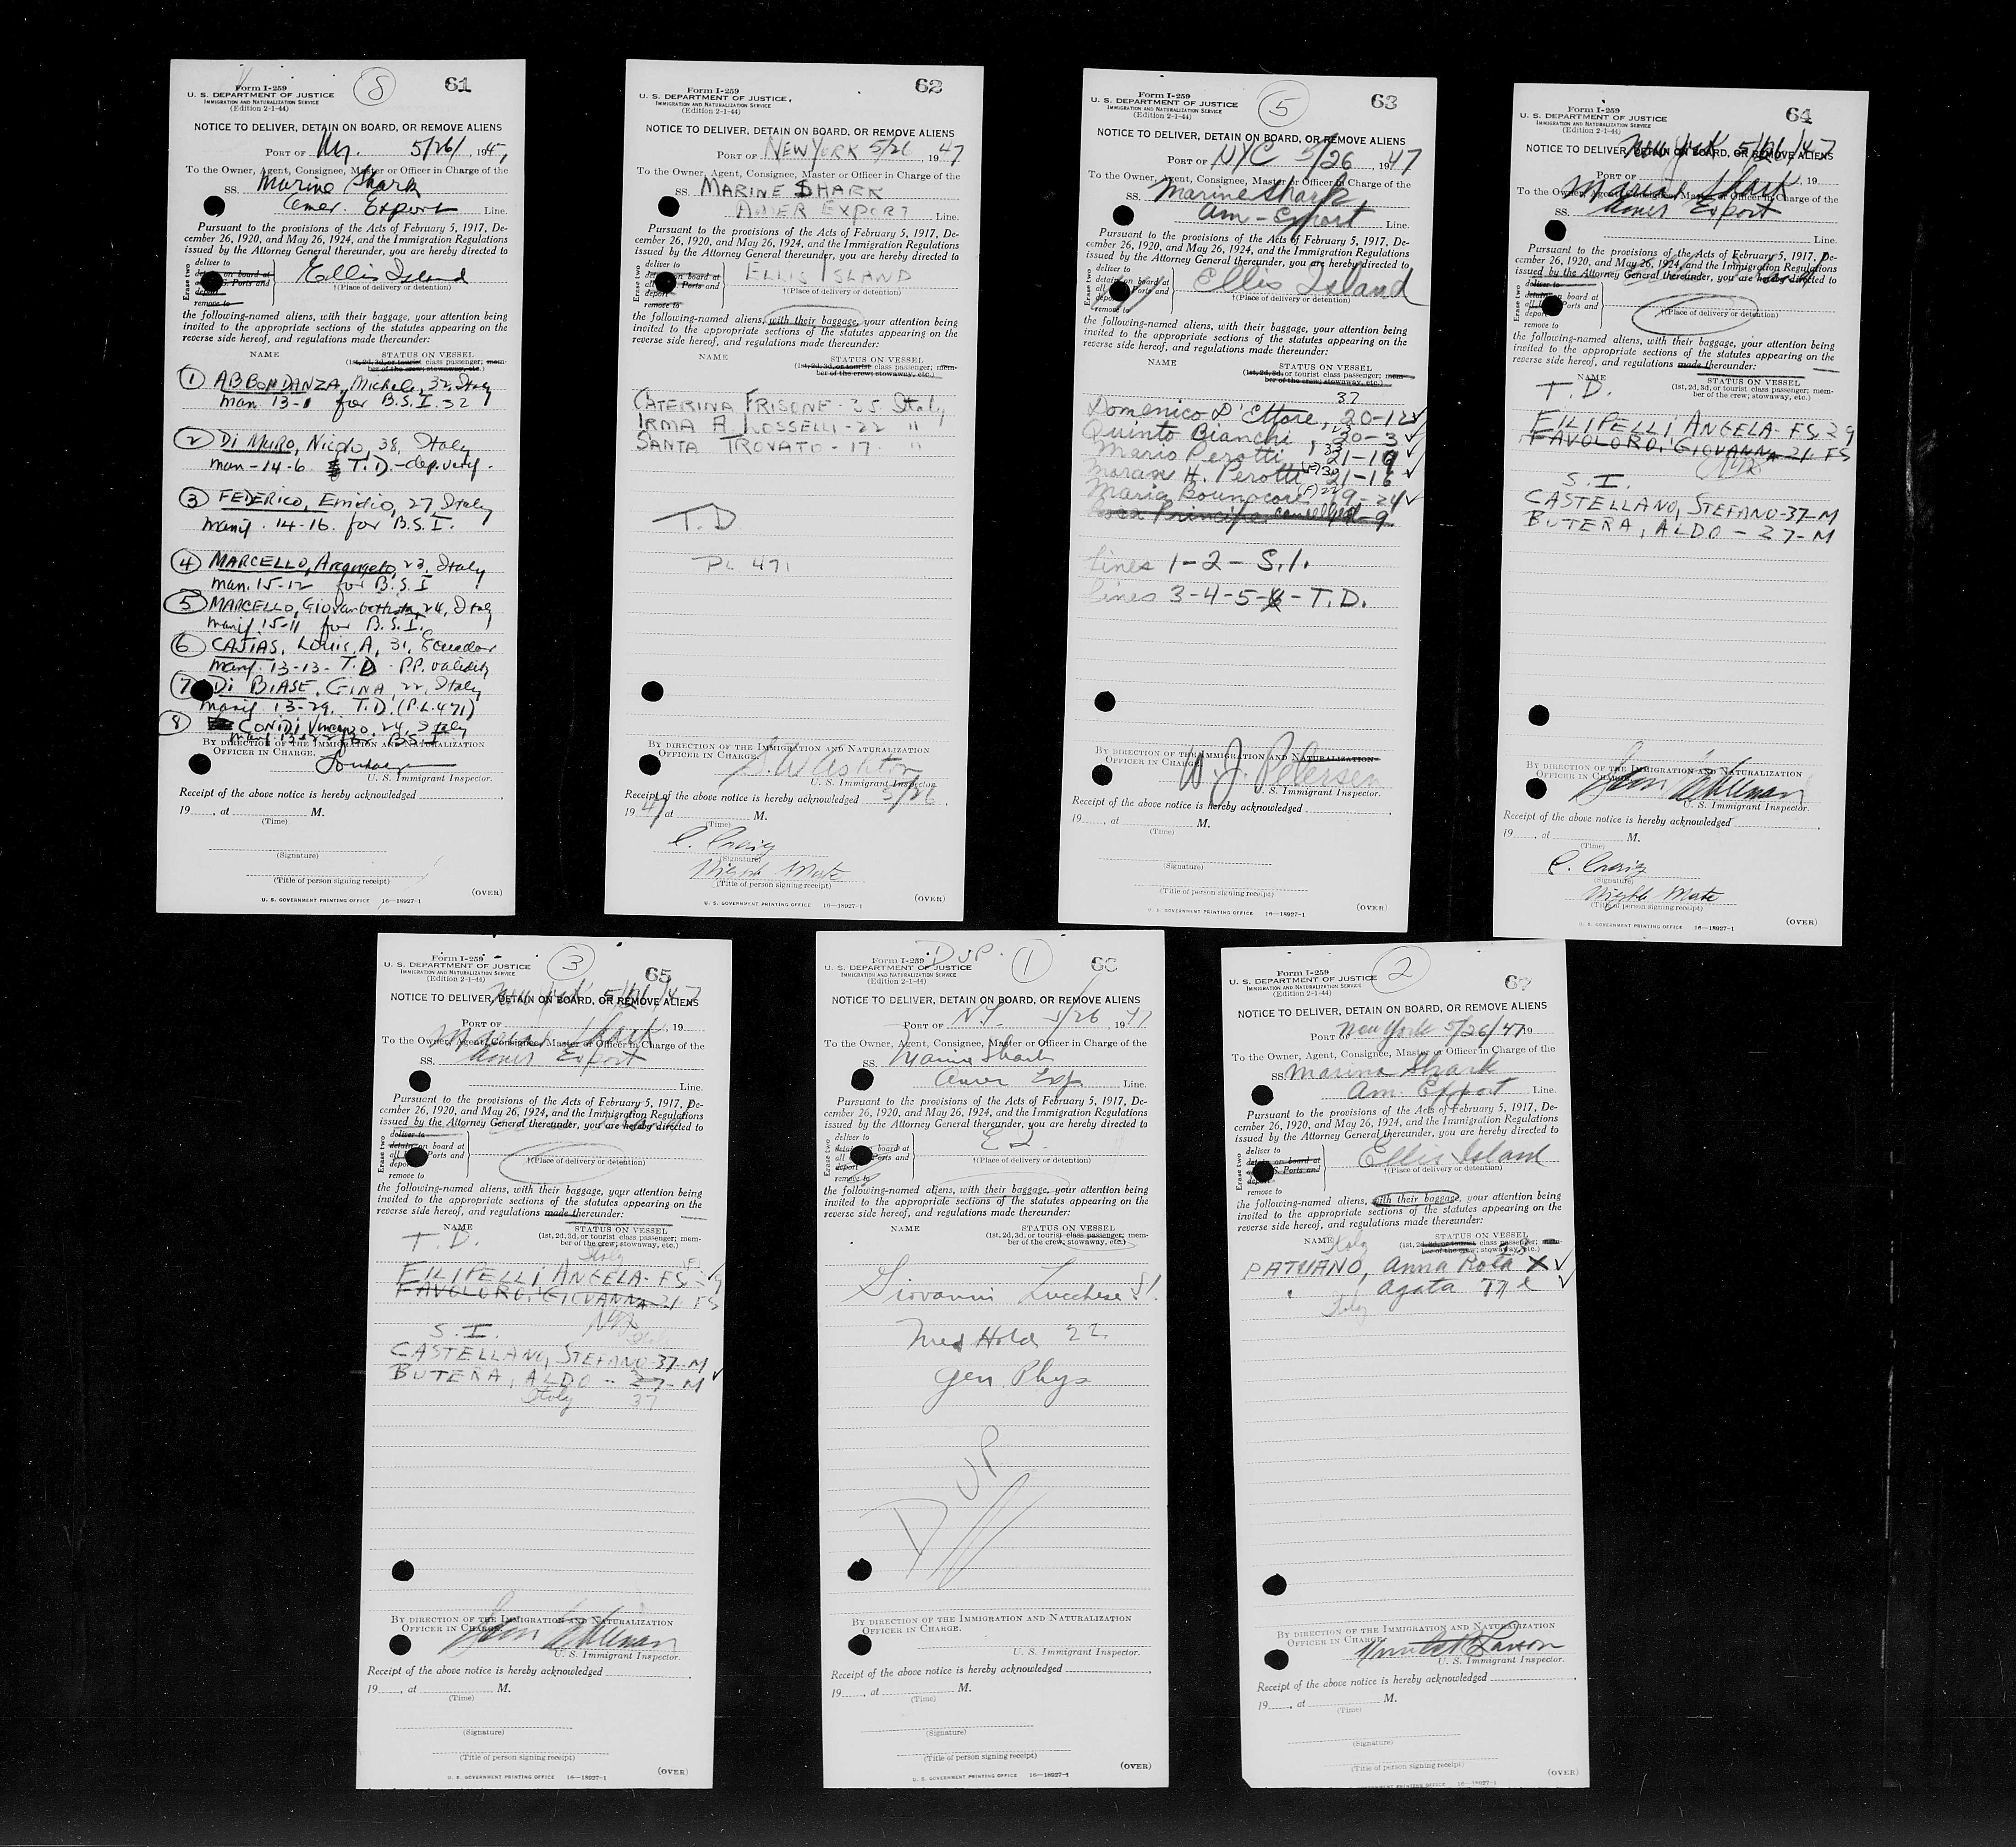 Form I-259 8 61
U. S. DEPARTMENT OF JUSTICE
IMMIGRATION AND NATURALIZATION SERVICE
(Edition 2-1-44)
NOTICE TO DELIVER, DETAIN ON BOARD, OR REMOVE ALIENS
PORT OF 5/26/, 19
To the Owner, Agent, Consignee, Master or Officer in Charge of the
SS. Marine Shark
Amer. Export Line.
Pursuant to the provisions of the Acts of February 5, 1917, De-
cember 26, 1920, and May 26, 1924, and the Immigration Regulations
issued by the Attorney General thereunder, you are hereby directed to
Erase two
deliver to
detain on board at
S. Ports and
deport
remove to
Ellis Island
†(Place of delivery or detention)
the following-named aliens, with their baggage, your attention being
invited to the appropriate sections of the statutes appearing on the
reverse side hereof, and regulations made thereunder:
NAME STATUS ON VESSEL
(1st, 2d, 3d, or tourist class passenger; mem-
ber of the crew; stowaway, etc.)
1 ABBONDANZA, Michele, 32, Italy
man 13-1 for B.S.I. 32
2 Di MURO, Nicolo, 38, Italy
man-14-6 T.D.-dep. verf.
3 FEDERICO, Emidio, 27, Italy
Manif. 14-16. for B.S.I.
4 MARCELLO, Arcangelo, 23, Italy
man. 15-12 for B.S.I
5 MARCELLO, Giovanbattista, 24, Italy
manif 15-11 for B.S.I.
6 CAJIAS, Louis, A, 31, Ecuador
Manif. 13-13- T.D - P.P. validity
7 Di BIASE, GINA, 22, Italy
Manif 13-29. T.D. (P.L.471)
8 CONIDI, Vincenzo, 24, Italy
for B.S.I
BY DIRECTION OF THE IMMIGRATION AND NATURALIZATION
OFFICER IN CHARGE.
U. S. Immigrant Inspector.
Receipt of the above notice is hereby acknowledged
19, at M.
(Time)
(Signature)
(Title of person signing receipt)
(OVER)
Form I-259 62
U. S. DEPARTMENT OF JUSTICE,
IMMIGRATION AND NATURALIZATION SERVICE
(Edition 2-1-44)
NOTICE TO DELIVER, DETAIN ON BOARD, OR REMOVE ALIENS
PORT OF NEW YORK 5/26 1947
To the Owner, Agent, Consignee, Master or Officer in Charge of the
SS. MARINE SHARK
AMER EXPORT Line.
Pursuant to the provisions of the Acts of February 5, 1917, De-
cember 26, 1920, and May 26, 1924, and the Immigration Regulations
issued by the Attorney General thereunder, you are hereby directed to
Erase two
deliver to
detain on board at
Ports and
remove to
ELLIS ISLAND
†(Place of delivery or detention)
the following-named aliens, with their baggage, your attention being
invited to the appropriate sections of the statutes appearing on the
reverse side hereof, and regulations made thereunder:
NAME STATUS ON VESSEL
(1st, 2d, 3d, or tourist class passenger; mem-
ber of the crew; stowaway, etc.)
CATERINA FRISONE - 35 Italy
IRMA A. LOSSELLI - 22 "
SANTA TROVATO - 17 - "
T.D
PL 471
BY DIRECTION OF THE IMMIGRATION AND NATURALIZATION
OFFICER IN CHARGE.
S. W Ashton
U. S. Immigrant Inspector.
Receipt of the above notice is hereby acknowledged 5/26
1947 at M.
(Time)
C. Craig
(Signature)
Night Mate
(Title of person signing receipt)
(OVER)
U. S. GOVERNMENT PRINTING OFFICE 16—18927-1
Form I-259 5 63
U. S. DEPARTMENT OF JUSTICE
IMMIGRATION AND NATURALIZATION SERVICE
(Edition 2-1-44)
NOTICE TO DELIVER, DETAIN ON BOARD, OR REMOVE ALIENS
PORT OF NYC 5/26, 1947
To the Owner, Agent, Consignee, Master or Officer in Charge of the
SS. Marine Shark
Am-Export Line.
Pursuant to the provisions of the Acts of February 5, 1917, De-
cember 26, 1920, and May 26, 1924, and the Immigration Regulations
issued by the Attorney General thereunder, you are hereby directed to
Erase two
deliver to
board at
Ports and
remove to
Ellis Island
†(Place of delivery or detention)
the following-named aliens, with their baggage, your attention being
invited to the appropriate sections of the statutes appearing on the
reverse side hereof, and regulations made thereunder:
NAME STATUS ON VESSEL
(1st, 2d, 3d, or tourist class passenger; mem-
ber of the crew; stowaway, etc.)
37
Domenico D'Ettore, 20-12
Quinto Bianchi, 20-3
Mario Perotti, 33 21-19
H. Perotti 21-16
Maria Bounocore (F) 22 19-24
Principe cancelled -9
Lines 1-2-S.I.
Lines 3-4-5-6-T.D.
BY DIRECTION OF THE IMMIGRATION AND NATURALIZATION
OFFICER IN CHARGE.
W. J. Petersen
U. S. Immigrant Inspector.
Receipt of the above notice is hereby acknowledged
19, at M.
(Time)
(Signature)
(Title of person signing receipt)
(OVER)
U. S. GOVERNMENT PRINTING OFFICE 16—18927-1
Form I-259 64
U. S. DEPARTMENT OF JUSTICE
IMMIGRATION AND NATURALIZATION SERVICE
(Edition 2-1-44)
NOTICE TO DELIVER, DETAIN ON BOARD, OR REMOVE ALIENS
New York 5/26/47
PORT OF, 19
Marine Shark
To the Owner, Agent, Consignee, Master or Officer in Charge of the
SS. Amer Export
Line.
Pursuant to the provisions of the Acts of February 5, 1917, De-
cember 26, 1920, and May 26, 1924, and the Immigration Regulations
issued by the Attorney General thereunder, you are hereby directed to
Erase two
deliver to
detain on board at
all Ports and
remove to
†(Place of delivery or detention)
the following-named aliens, with their baggage, your attention being
invited to the appropriate sections of the statutes appearing on the
reverse side hereof, and regulations made thereunder:
NAME STATUS ON VESSEL
T.D. (1st, 2d, 3d, or tourist class passenger; mem-
ber of the crew; stowaway, etc.)
FILIPELLI ANGELA-FS 29
FAVOLORO, GIOVANNA 21 FS
S.I.
CASTELLANO, STEFANO-37-M
BUTERA, ALDO - 27-M
BY DIRECTION OF THE IMMIGRATION AND NATURALIZATION
OFFICER IN CHARGE.
U. S. Immigrant Inspector.
Receipt of the above notice is hereby acknowledged
19, at M.
(Time)
C. Craig
(Signature)
Night Mate
(Title of person signing receipt)
(OVER)
U. S. GOVERNMENT PRINTING OFFICE 16—18927-1
Form I-259 3 65
U. S. DEPARTMENT OF JUSTICE
IMMIGRATION AND NATURALIZATION SERVICE
(Edition 2-1-44)
New York 5/26/47
NOTICE TO DELIVER, DETAIN ON BOARD, OR REMOVE ALIENS
PORT OF, 19
Marine Shark
To the Owner, Agent, Consignee, Master or Officer in Charge of the
SS. Amer Export
Line.
Pursuant to the provisions of the Acts of February 5, 1917, De-
cember 26, 1920, and May 26, 1924, and the Immigration Regulations
issued by the Attorney General thereunder, you are hereby directed to
Erase two
deliver to
detain on board at
all Ports and
deport
remove to
†(Place of delivery or detention)
the following-named aliens, with their baggage, your attention being
invited to the appropriate sections of the statutes appearing on the
reverse side hereof, and regulations made thereunder:
NAME STATUS ON VESSEL
T.D. (1st, 2d, 3d, or tourist class passenger; mem-
ber of the crew; stowaway, etc.)
Italy
FILIPELLI ANGELA-FS 29
FAVOLORO, GIOVANNA 21 FS
S.I.
Italy
CASTELLANO, STEFANO-37-M
BUTERA, ALDO - 27-M
Italy 37
BY DIRECTION OF THE IMMIGRATION AND NATURALIZATION
OFFICER IN CHARGE.
U. S. Immigrant Inspector.
Receipt of the above notice is hereby acknowledged
19, at M.
(Time)
(Signature)
(Title of person signing receipt)
(OVER)
U. S. GOVERNMENT PRINTING OFFICE 16—18927-1
Form I-259 DUP. 1 66
U. S. DEPARTMENT OF JUSTICE
IMMIGRATION AND NATURALIZATION SERVICE
(Edition 2-1-44)
NOTICE TO DELIVER, DETAIN ON BOARD, OR REMOVE ALIENS
PORT OF N.Y. 5/26, 1947
To the Owner, Agent, Consignee, Master or Officer in Charge of the
SS. Marine Shark
Amer Exp. Line.
Pursuant to the provisions of the Acts of February 5, 1917, De-
cember 26, 1920, and May 26, 1924, and the Immigration Regulations
issued by the Attorney General thereunder, you are hereby directed to
Erase two
deliver to
detain board at
all Ports and
deport
remove to
E I.
†(Place of delivery or detention)
the following-named aliens, with their baggage, your attention being
invited to the appropriate sections of the statutes appearing on the
reverse side hereof, and regulations made thereunder:
NAME STATUS ON VESSEL
(1st, 2d, 3d, or tourist class passenger; mem-
ber of the crew; stowaway, etc.)
Giovanni Lucchese S1.
Med Hold 22
Gen. Phys
DUP
BY DIRECTION OF THE IMMIGRATION AND NATURALIZATION
OFFICER IN CHARGE.
U. S. Immigrant Inspector.
Receipt of the above notice is hereby acknowledged
19, at M.
(Time)
(Signature)
(Title of person signing receipt)
(OVER)
U. S. GOVERNMENT PRINTING OFFICE 16—18927-1
Form I-259 2 67
U. S. DEPARTMENT OF JUSTICE
IMMIGRATION AND NATURALIZATION SERVICE
(Edition 2-1-44)
NOTICE TO DELIVER, DETAIN ON BOARD, OR REMOVE ALIENS
PORT OF New York 5/26/47 19
To the Owner, Agent, Consignee, Master or Officer in Charge of the
SS. Marina Shark
Am. Export Line.
Pursuant to the provisions of the Acts of February 5, 1917, De-
cember 26, 1920, and May 26, 1924, and the Immigration Regulations
issued by the Attorney General thereunder, you are hereby directed to
Erase two
deliver to
detain on board at
S. Ports and
deport
remove to
Ellis Island
†(Place of delivery or detention)
the following-named aliens, with their baggage, your attention being
invited to the appropriate sections of the statutes appearing on the
reverse side hereof, and regulations made thereunder:
NAME Italy STATUS ON VESSEL
(1st, 2d, 3d, or tourist class passenger; mem-
ber of the crew; stowaway, etc.)
PATUANO, Anna Rosa X
" Agata
Italy
BY DIRECTION OF THE IMMIGRATION AND NATURALIZATION
OFFICER IN CHARGE.
Larson
U. S. Immigrant Inspector.
Receipt of the above notice is hereby acknowledged
19, at M.
(Time)
(Signature)
(Title of person signing receipt)
(OVER)
GOVERNMENT PRINTING OFFICE 16—18927-1